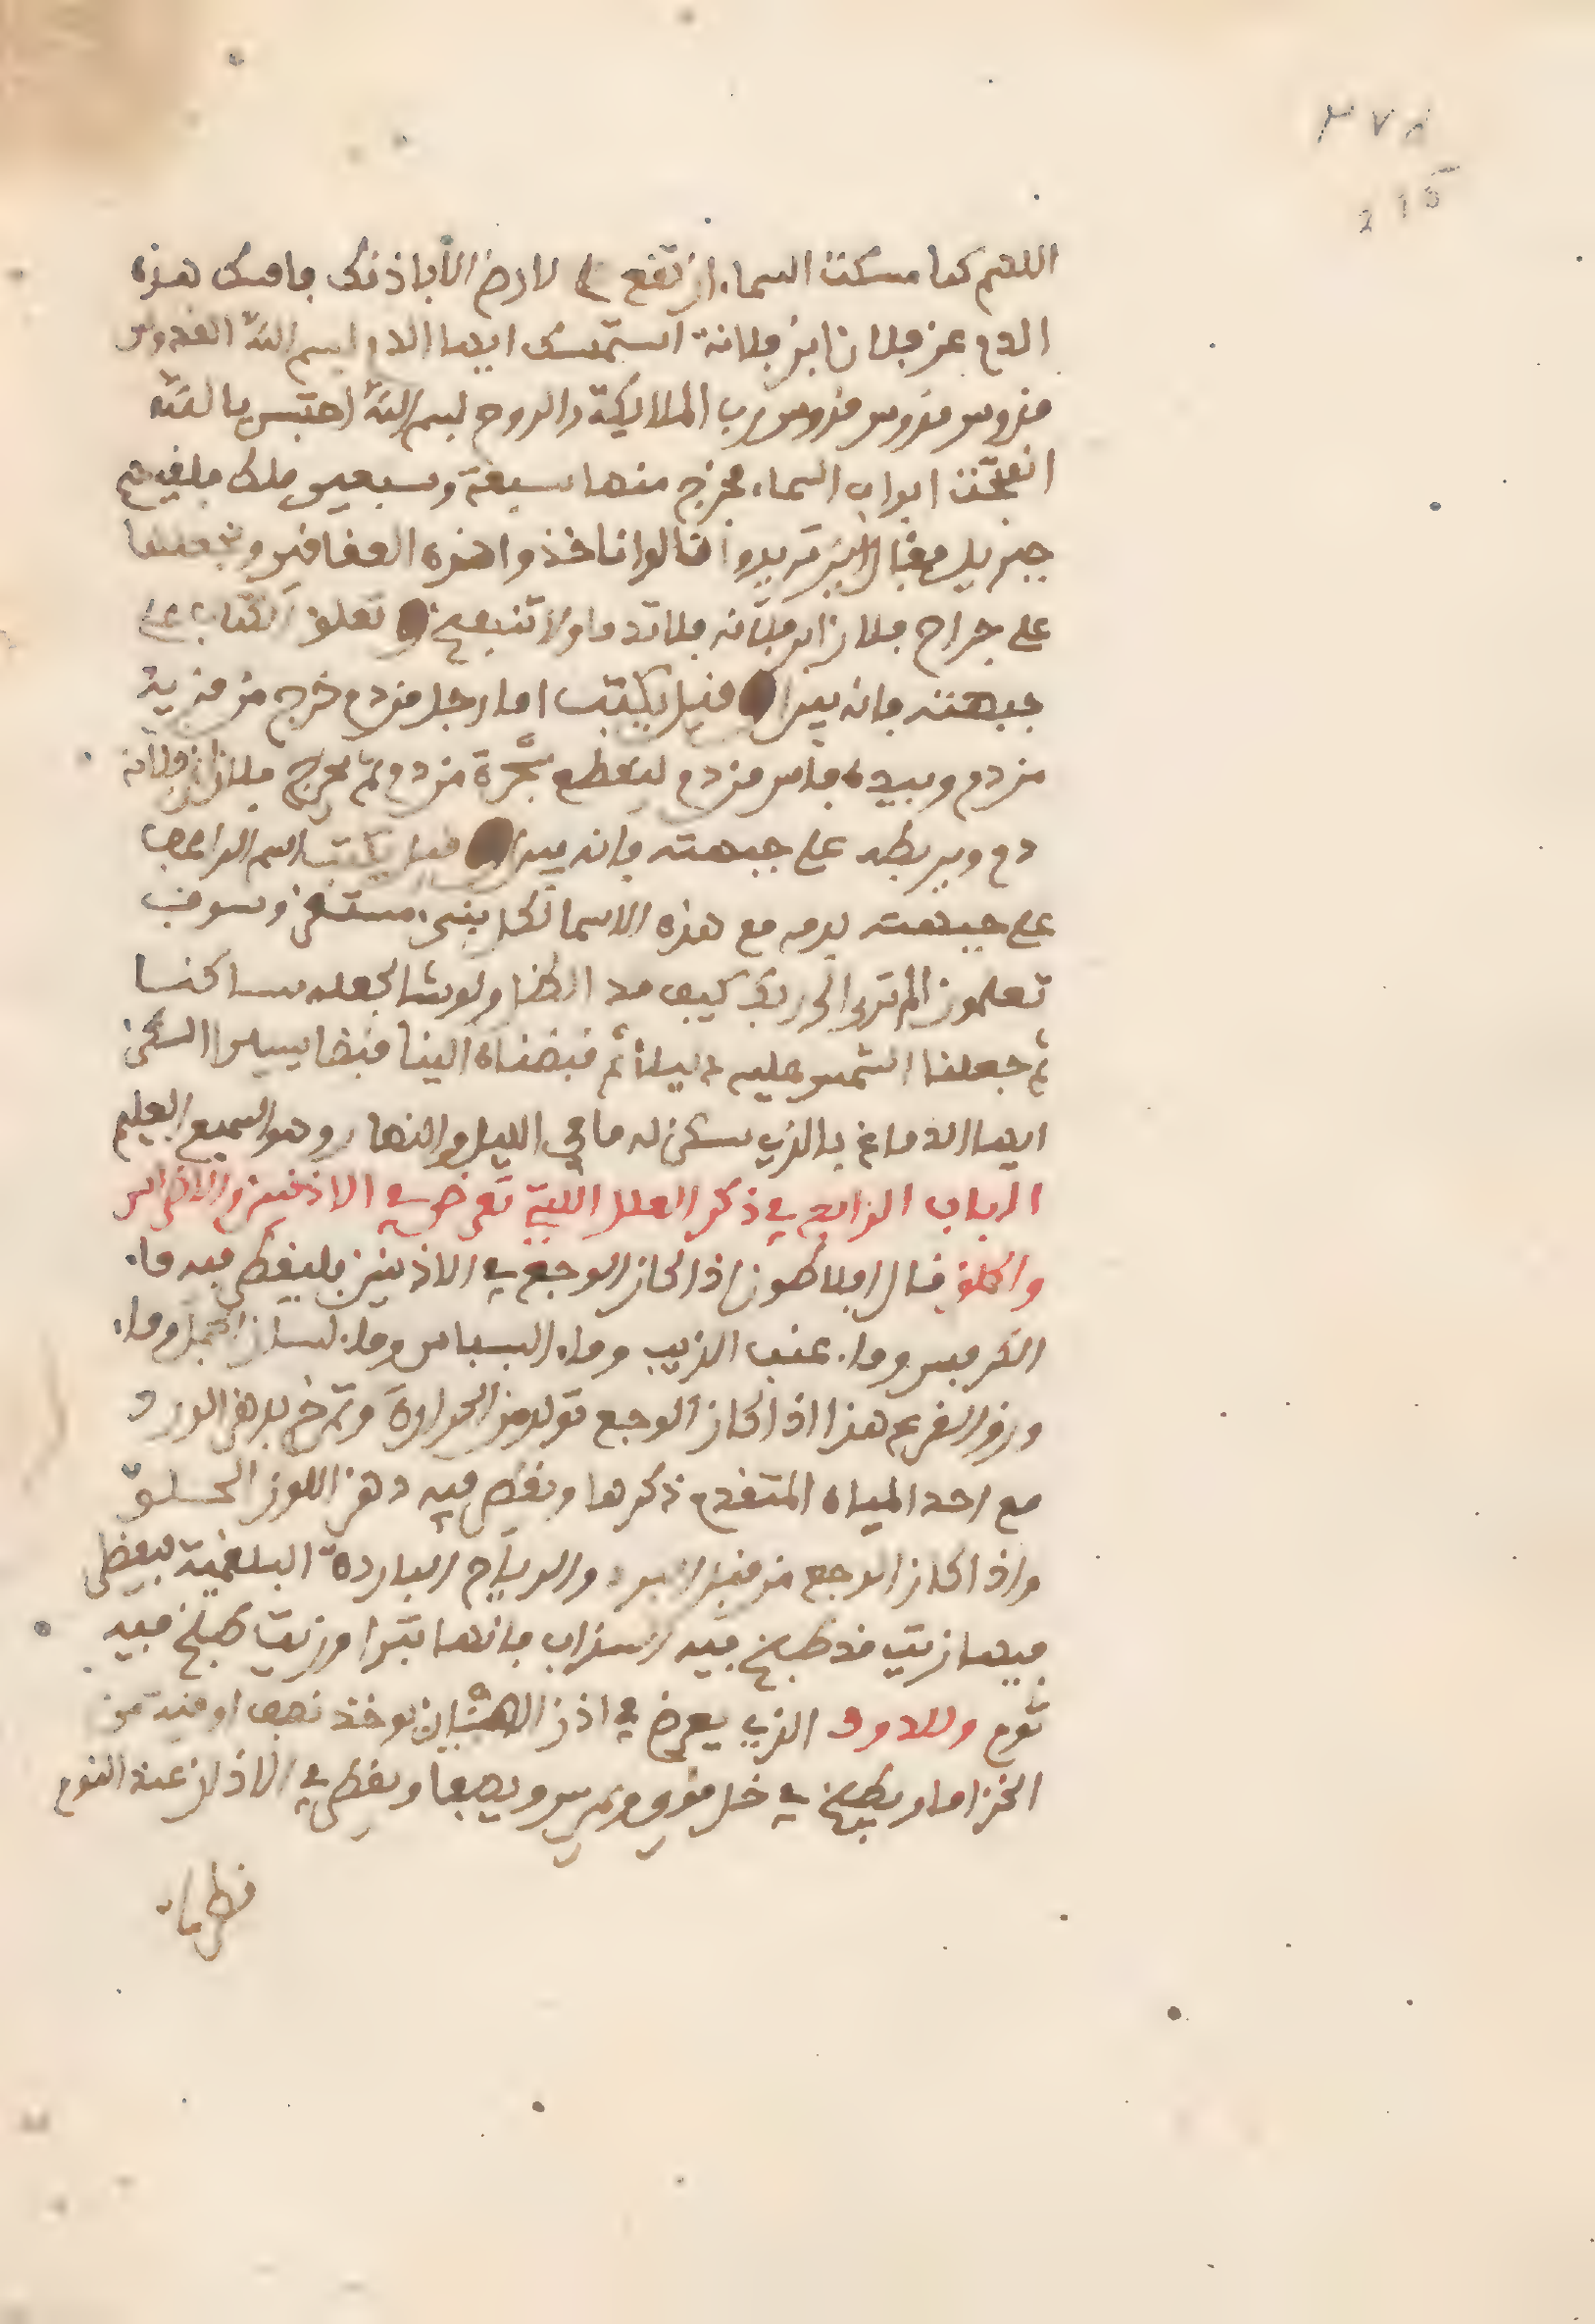 ٣٧٨
215
اللهم كما مسكت السماء ان تقع على لارض الا باذنك فامسك هذه
الدم عن فلان ابن فلانة استمسك ايها الدم بسم الله القدوس
قدوس قدوس قدوس رب الملايكة والروح بسم الله احتبس بالله
انفتحت ابواب السماء فخرج منها سبعة وسبعين ملكا فلقيهم
جبريل فقال اين تريدوا قالوا ناخذوا هذه العقاقير ونجعلها
على جراح فلان ابن فلانه فلا تدما ولا تنبعج وتعلق الكتاب على
جبهته فانه يبرا قيل يكتب اما رجل من دم خرج من قرية
من دم وبيده فاس من دم ليقطع شجرة من دم ثم يخرج فلان ابن فلانه
دم ويربطه على جبهته فانه يبرا قيل يكتب اسم الراعف
على جبهته بدمه مع هذه الاسما لكل نبى مستقر وسوف
تعلمون الم ترى الى ربك كيف مد الظل ولو شا لجعله ساكنا
ثم جعلنا الشمس عليه دليلا ثم قبضناه الينا قبضا يسيرا اسكن
ايها الدماغ بالذي سكن له ما في الليل والنهار وهو السميع العليم
الباب الرابع في ذكر العلل اللتي تعرض في الاذنين والاضراس
والحلق قال افلاطون اذا كان الوجع في الاذنين فليقطر فيه ماء
الكرفس وماء عنب الذيب وماء البسباس وماء لسان الحمل وماء
ورق القرع هذا اذا كان الوجع تولد من الحرارة وتمرخ بدهن الورد
مع احد المياه المتقدم ذكرها ويقطر فيه دهن اللوز الحلو
واذا كان الوجع من قبل البرد والرياح الباردة البلغمية فيقطر
فيها زيت قد طبخ فيه السذاب فانها تبرا وزيت طبخ فيه
ثوم وللدود الذي يعرض في اذن الصبيان يوخذ نصف اوقية من
الخزاما ويطبخ في خل قوي ويمرس ويصفا ويقطر في الاذن عند النوم
قطرات